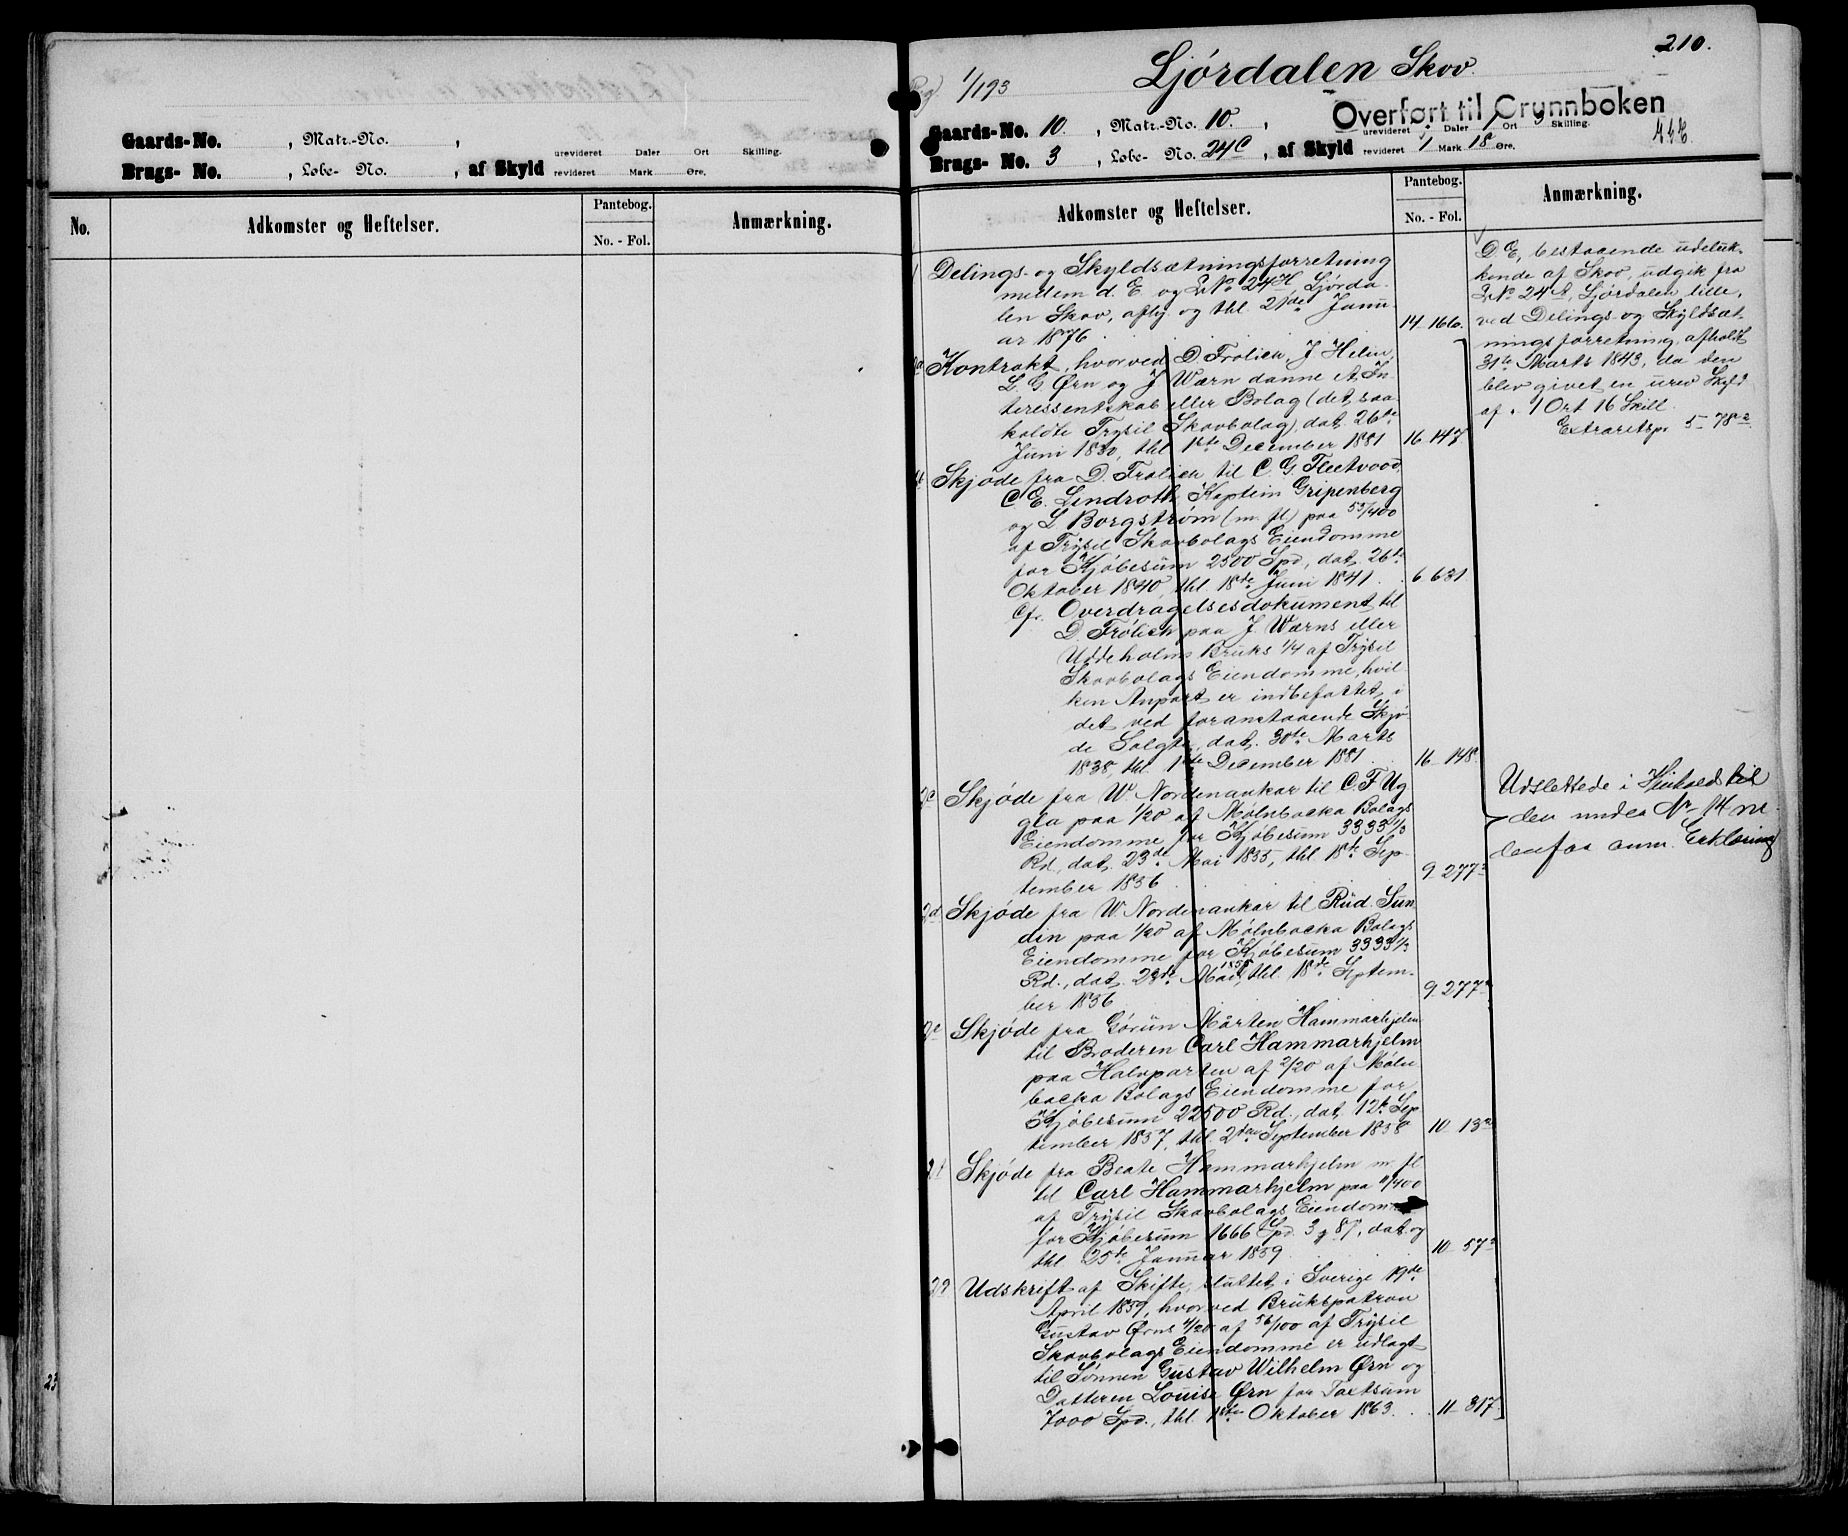 Gaards-No. , Matr.-No. ,
urevideret Daler Ort Skilling.
Brugs- No. , Løbe- No. , af Skyld revideret Mark Øre.
No. Adkomster og Heftelser. Pantebog. No. - Fol. Anmærkning.
23
210.
1/193 Ljørdalen Skov.
Overført til Grunnboken
Gaards-No. 10. , Matr.-No. 10. , urevideret Daler 1 Ort Skilling.
Brugs- No. 3 , Løbe- No. 24C , af Skyld revideret 1 Mark 18 Øre.
Adkomster og Heftelser. Pantebog. No. - Fol. Anmærkning.
1 Delings- og Skyldsætningsforretning
mellem d. E. og L.No 24H Ljørda-
len Skov, afhj. og thl. 21de Janu-
ar 1876 14-166.
2a Kontrakt, hvorved D. Frølich, J. Helin,
L. G. Ørn og J. Wærn danne et In-
teressentskab eller Bolag (det saa-
kaldte Trysil Skovbolag), dat. 26de
Juni 1830, thl. 1ste December 1881 16-147
Skjøde fra D. Frølich til C. G. Fleetwood,
C. E. Lindroth, Kaptein Gripenberg
og L. Borgstrøm (m. fl.) paa 53/400
af Trysil Skovbolags Eiendomme
for Kjøbesum 2500 Spd., dat. 26de
Oktober 1840, thl. 18de Juni 1841. 6-631
Cfr. Overdragelsesdokument til
D. Frølich paa J. Wærns eller
Uddeholms Bruks 1/4 af Trysil
Skovbolags Eiendomme, hvil-
ken Anpart er indbefattet i
det ved foranstaaende Skjø-
de Solgte, dat. 30te Marts
1838, thl. 1ste December 1881. 16-148.
2c Skjøde fra W. Nordenankar til C. F. Ug
gla paa 1/20 af Mølnbacka Bolags
Eiendomme for Kjøbesum 3333 1/3
Rd., dat. 23de Mai 1855, thl. 18de Sep-
tember 1856 9-277
2d Skjøde fra W. Nordenankar til Rud. Sun-
din paa 1/20 af Mølnbacka Bolags
Eiendomme for Kjøbesum 3333 1/3
Rd., dat. 23de Mai 1855, thl. 18de Septem-
ber 1856 9-277
2e Skjøde fra Görun Mårten Hammarhjelm
til Broderen Carl Hammarhjelm
paa Halvparten af 2/20 af Møln-
backa Bolags Eiendomme for
Kjøbesum 22500 Rd., dat. 12te Sep-
tember 1857, thl. 2den September 1858 10-13
2f Skjøde fra Beate Hammarhjelm m. fl.
til Carl Hammarhjelm paa /400
af Trysil Skovbolags Eiendomme
for Kjøbesum 1666 Spd. 3 , dat. og
thl. 25de Januar 1859. 10-57
2g Udskrift af Skifte, sluttet i Sverige 19de
April 1859, hvorved Brukspatron
Gustav Ørns 4/20 af 56/100 af Trysil
Skovbolags Eiendomme er udlagt
til Sønnen Gustav Wilhelm Ørn og
Datteren Louise Ørn for Taxtsum
7000 Spd., thl. 1ste Oktober 1863. 11-317.
D. E., bestaaende udeluk-
kende af Skov, udgik fra
L.No 24A, Ljørdalen lille,
ved Delings- og Skyldsæt-
ningsforretning, afholdt
31te Marts 1843, da den
blev givet en urev. Skyld
af 1 Ort 16 Skill.
Extraretspr. 5-78
Udslettede i Henhold til
den under No 14 ne-
denfor anm. Erklæring